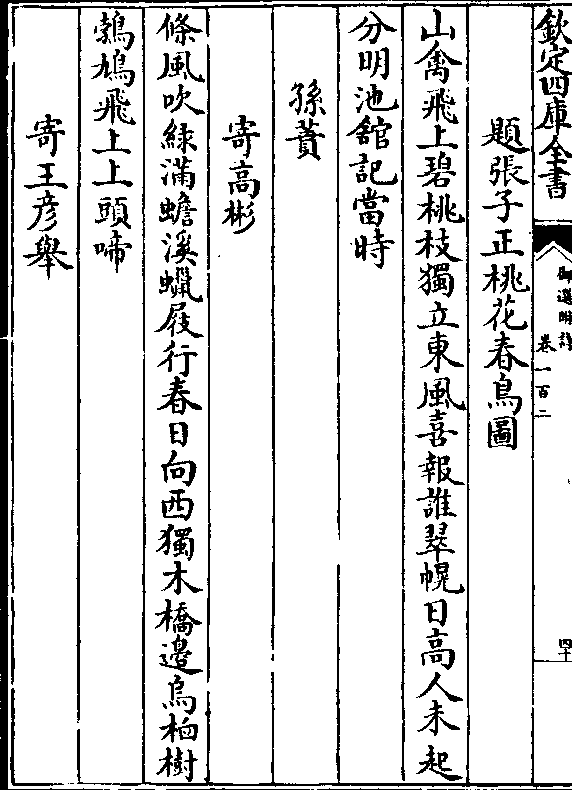 欽定四庫全書
御選明詩
卷一百二
四十
題張子正桃花春鳥圖
山禽飛上碧桃枝獨立東風喜報誰翠幌日高人未起
分明池舘記當時
孫蕡
寄高彬
條風吹緑滿蟾溪蠟屐行春日向西獨木橋邊烏桕樹
鵓鳩飛上上頭啼
寄王彦舉